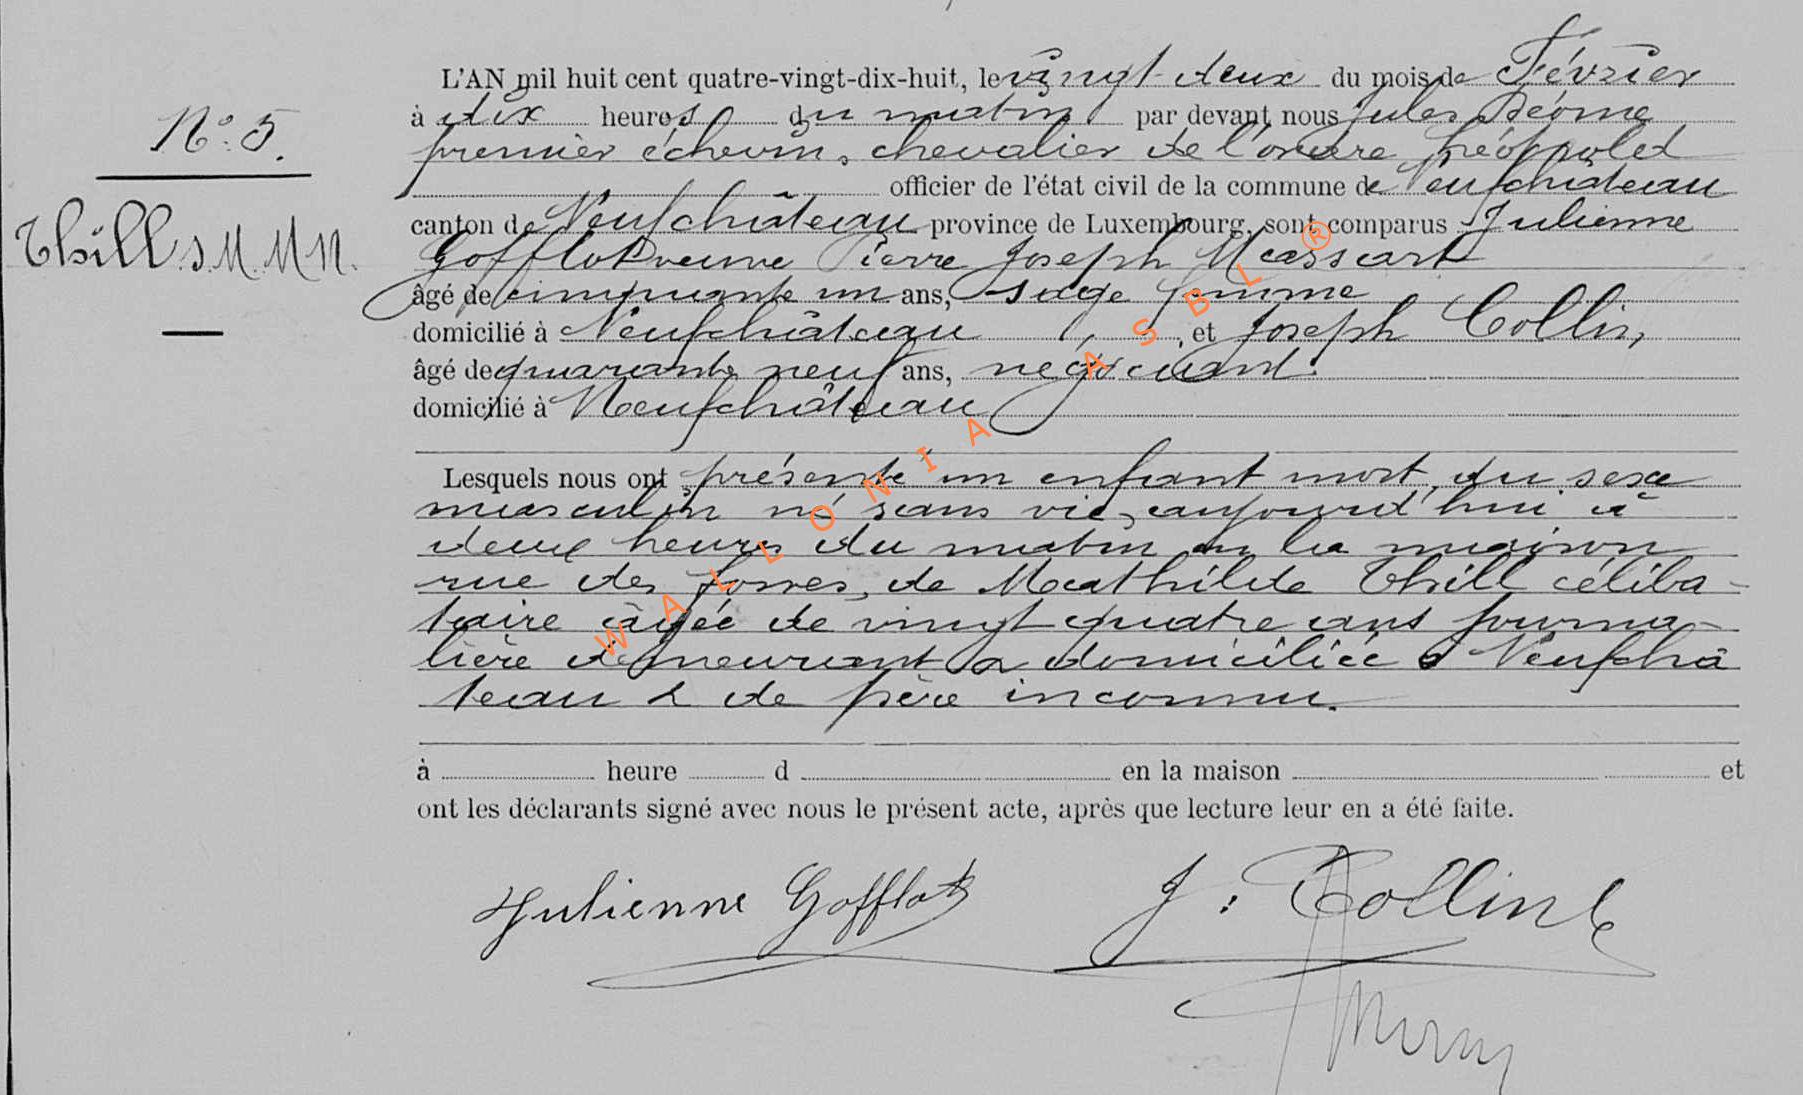 N° 5.
Thill. M. M N.
L'AN mil huit cent quatre-vingt-dix-huit, le vingt-deux du mois de Février
à dix heures du matin par devant nous Jules
premier échevin, chevalier de l'ordre Léopold
officier de l'état civil de la commune de Neufchâteau
canton de Neufchâteau province de Luxembourg, sont comparus Julienne
Gofflot veuve Pierre Joseph Massart
âgé de cinquante un ans, sage femme
domicilié à Neufchâteau, et Joseph Collin,
âgé de quarante neuf ans, négociant.
domicilié à Neufchâteau
Lesquels nous ont présenté un enfant mort, du sexe
masculin né sans vie, aujourd'hui à
deux heures du matin en la maison
rue des fosses, de Mathilde Thill céliba-
taire âgée de vingt quatre ans journa-
lière demeurant & domiciliée à Neufchâ
teau & de père inconnu.
à heure d en la maison et
ont les déclarants signé avec nous le présent acte, après que lecture leur en a été faite.
Julienne Gofflot J. Collin
WALLONIA ASBL ®